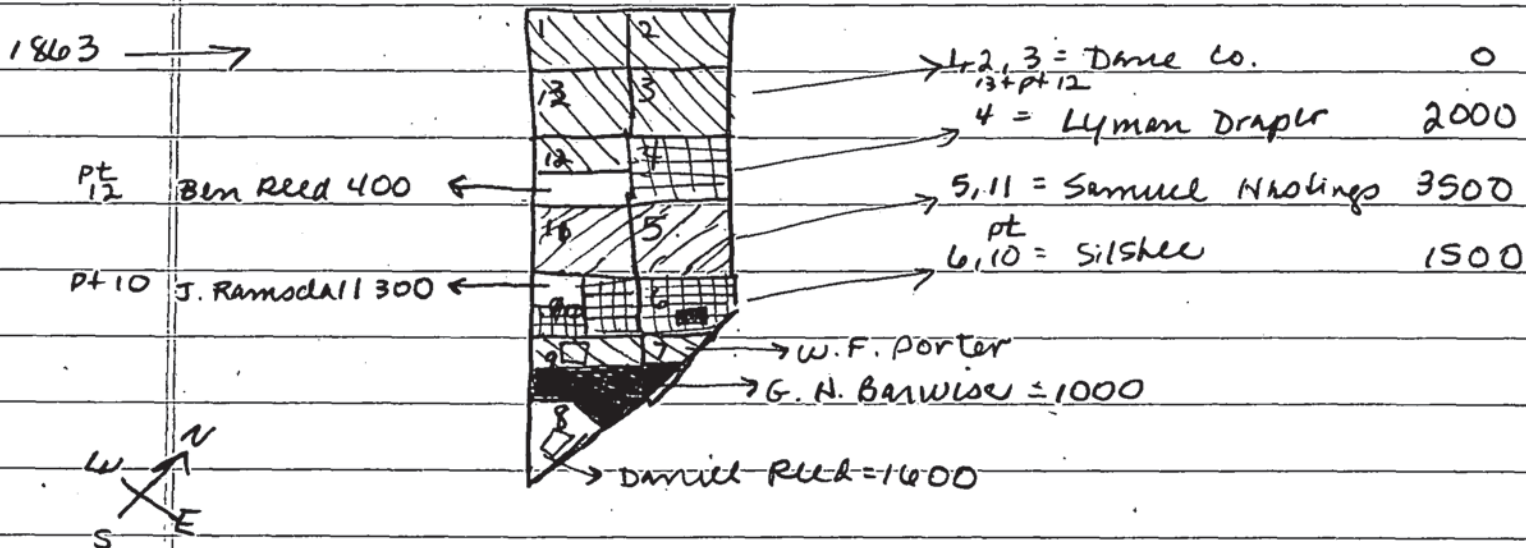 1863
1 2
1,2,3 = Dane Co. 0
13 + pt 12
13 3
4 = Lyman Draper 2000
12 4
pt 12 Ben Reed 400
5,11 = Samuel Hastings 3500
11 5
pt
6,10 = Silsbee 1500
pt 10 J. Ramsdall 300
10 6
9 7
W.F. Porter
G. N. Barwise = 1000
8
Daniel Reed = 1600
N
W
E
S